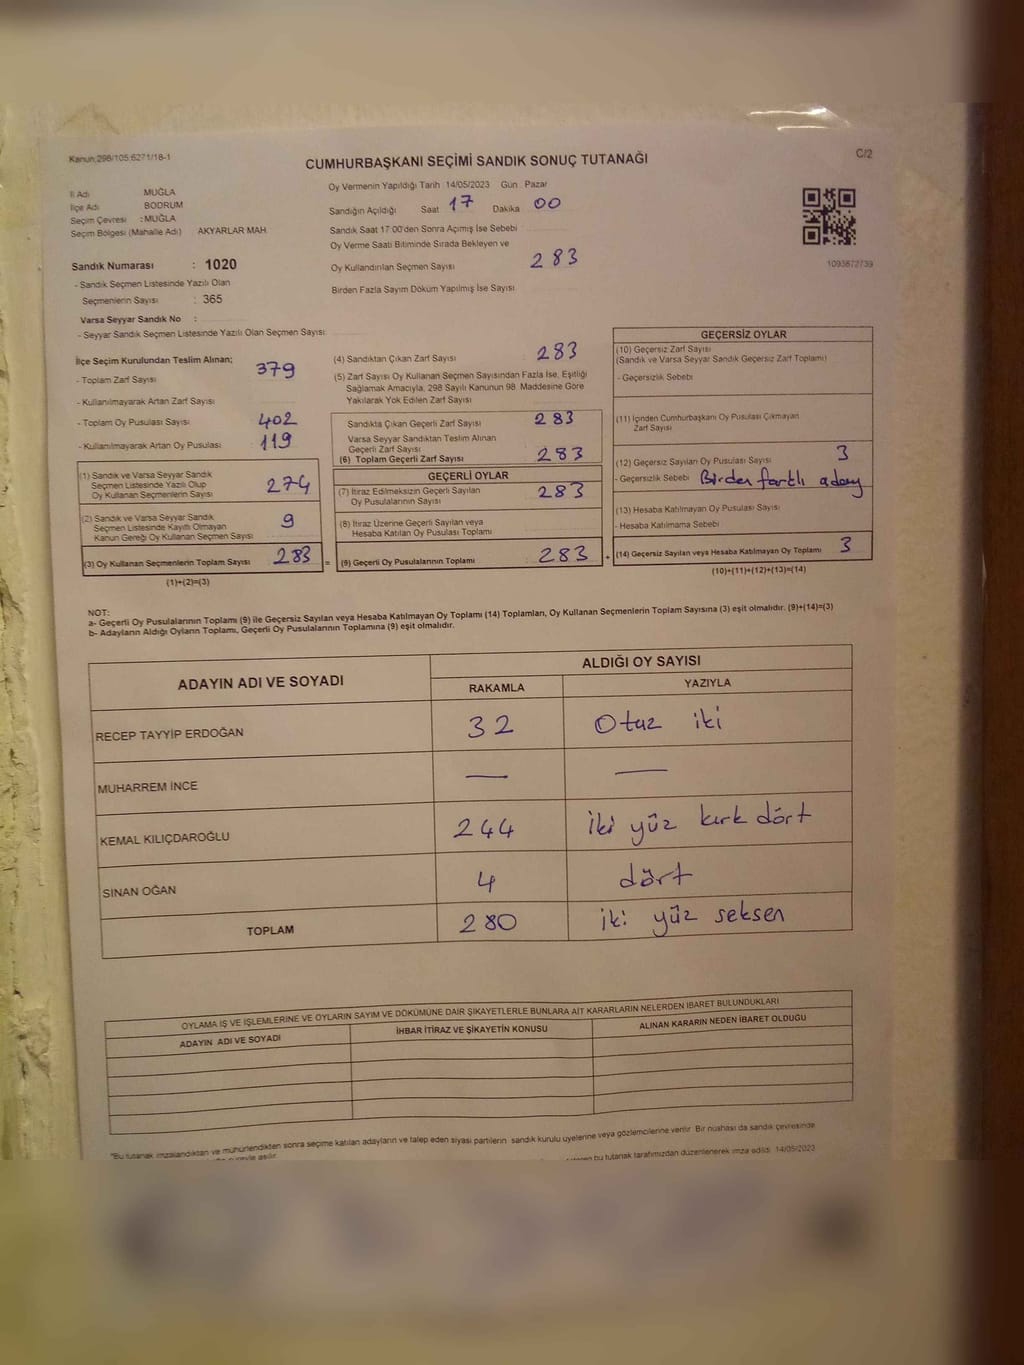 Kanun:298/105:6271/18-1
C/2
CUMHURBAŞKANI SEÇİMİ SANDIK SONUÇ TUTANAĞI
İl Adı MUĞLA
İlçe Adı BODRUM
Seçim Çevresi : MUĞLA
Seçim Bölgesi (Mahalle Adı) AKYARLAR MAH
Sandık Numarası : 1020
- Sandık Seçmen Listesinde Yazılı Olan
Seçmenlerin Sayısı : 365
Varsa Seyyar Sandık No :
- Seyyar Sandık Seçmen Listesinde Yazılı Olan Seçmen Sayısı
Oy Vermenin Yapıldığı Tarih 14/05/2023 Gün Pazar
Sandığın Açıldığı Saat 17 Dakika 00
Sandık Saat 17:00'den Sonra Açımış İse Sebebi
Oy Verme Saati Bitiminde Sırada Bekleyen ve
Oy Kullandırılan Seçmen Sayısı 283
Birden Fazla Sayım Döküm Yapılmış İse Sayısı
1093672739
İlçe Seçim Kurulundan Teslim Alınan;
- Toplam Zarf Sayısı 379
- Kullanılmayarak Artan Zarf Sayısı
- Toplam Oy Pusulası Sayısı 402
- Kullanılmayarak Artan Oy Pusulası 119
(1) Sandık ve Varsa Seyyar Sandık
Seçmen Listesinde Yazılı Olup
Oy Kullanan Seçmenlerin Sayısı 274
(2) Sandık ve Varsa Seyyar Sandık
Seçmen Listesinde Kayıtlı Olmayan
Kanun Gereği Oy Kullanan Seçmen Sayısı 9
(3) Oy Kullanan Seçmenlerin Toplam Sayısı 283 =
(1)+(2)=(3)
(4) Sandıktan Çıkan Zarf Sayısı 283
(5) Zarf Sayısı Oy Kullanan Seçmen Sayısından Fazla İse, Eşitliği
Sağlamak Amacıyla, 298 Sayılı Kanunun 98. Maddesine Göre
Yakılarak Yok Edilen Zarf Sayısı
Sandıkta Çıkan Geçerli Zarf Sayısı 283
Varsa Seyyar Sandıktan Teslim Alınan
Geçerli Zarf Sayısı
(6) Toplam Geçerli Zarf Sayısı 283
GEÇERLİ OYLAR
(7) İtiraz Edilmeksizin Geçerli Sayılan
Oy Pusulalarının Sayısı 283
(8) İtiraz Üzerine Geçerli Sayılan veya
Hesaba Katılan Oy Pusulası Toplamı
(9) Geçerli Oy Pusulalarının Toplamı 283 +
GEÇERSİZ OYLAR
(10) Geçersiz Zarf Sayısı
(Sandık ve Varsa Seyyar Sandık Geçersiz Zarf Toplamı)
- Geçersizlik Sebebi
(11) İçinden Cumhurbaşkanı Oy Pusulası Çıkmayan
Zarf Sayısı
(12) Geçersiz Sayılan Oy Pusulası Sayısı 3
- Geçersizlik Sebebi Birden farklı aday
(13) Hesaba Katılmayan Oy Pusulası Sayısı
- Hesaba Katılmama Sebebi
(14) Geçersiz Sayılan veya Hesaba Katılmayan Oy Toplamı 3
(10)+(11)+(12)+(13)=(14)
NOT:
a- Geçerli Oy Pusulalarının Toplamı (9) ile Geçersiz Sayılan veya Hesaba Katılmayan Oy Toplamı (14) Toplamları, Oy Kullanan Seçmenlerin Toplam Sayısına (3) eşit olmalıdır. (9)+(14)=(3)
b- Adayların Aldığı Oyların Toplamı, Geçerli Oy Pusulalarının Toplamına (9) eşit olmalıdır.
ADAYIN ADI VE SOYADI
ALDIĞI OY SAYISI
RAKAMLA YAZIYLA
RECEP TAYYİP ERDOĞAN 32 Otuz iki
MUHARREM İNCE — —
KEMAL KILIÇDAROĞLU 244 iki yüz kırk dört
SİNAN OĞAN 4 dört
TOPLAM 280 iki yüz seksen
OYLAMA İŞ VE İŞLEMLERİNE VE OYLARIN SAYIM VE DÖKÜMÜNE DAİR ŞİKAYETLERLE BUNLARA AİT KARARLARIN NELERDEN İBARET BULUNDUKLARI
ADAYIN ADI VE SOYADI İHBAR İTİRAZ VE ŞİKAYETİN KONUSU ALINAN KARARIN NEDEN İBARET OLDUĞU
"Bu tutanak imzalandıktan ve mühürlendikten sonra seçime katılan adayların ve talep eden siyasi partilerin sandık kurulu üyelerine veya gözlemcilerine verilir. Bir nüshası da sandık çevresinde
bu tutanak tarafımızdan düzenlenerek imza edildi. 14/05/2023